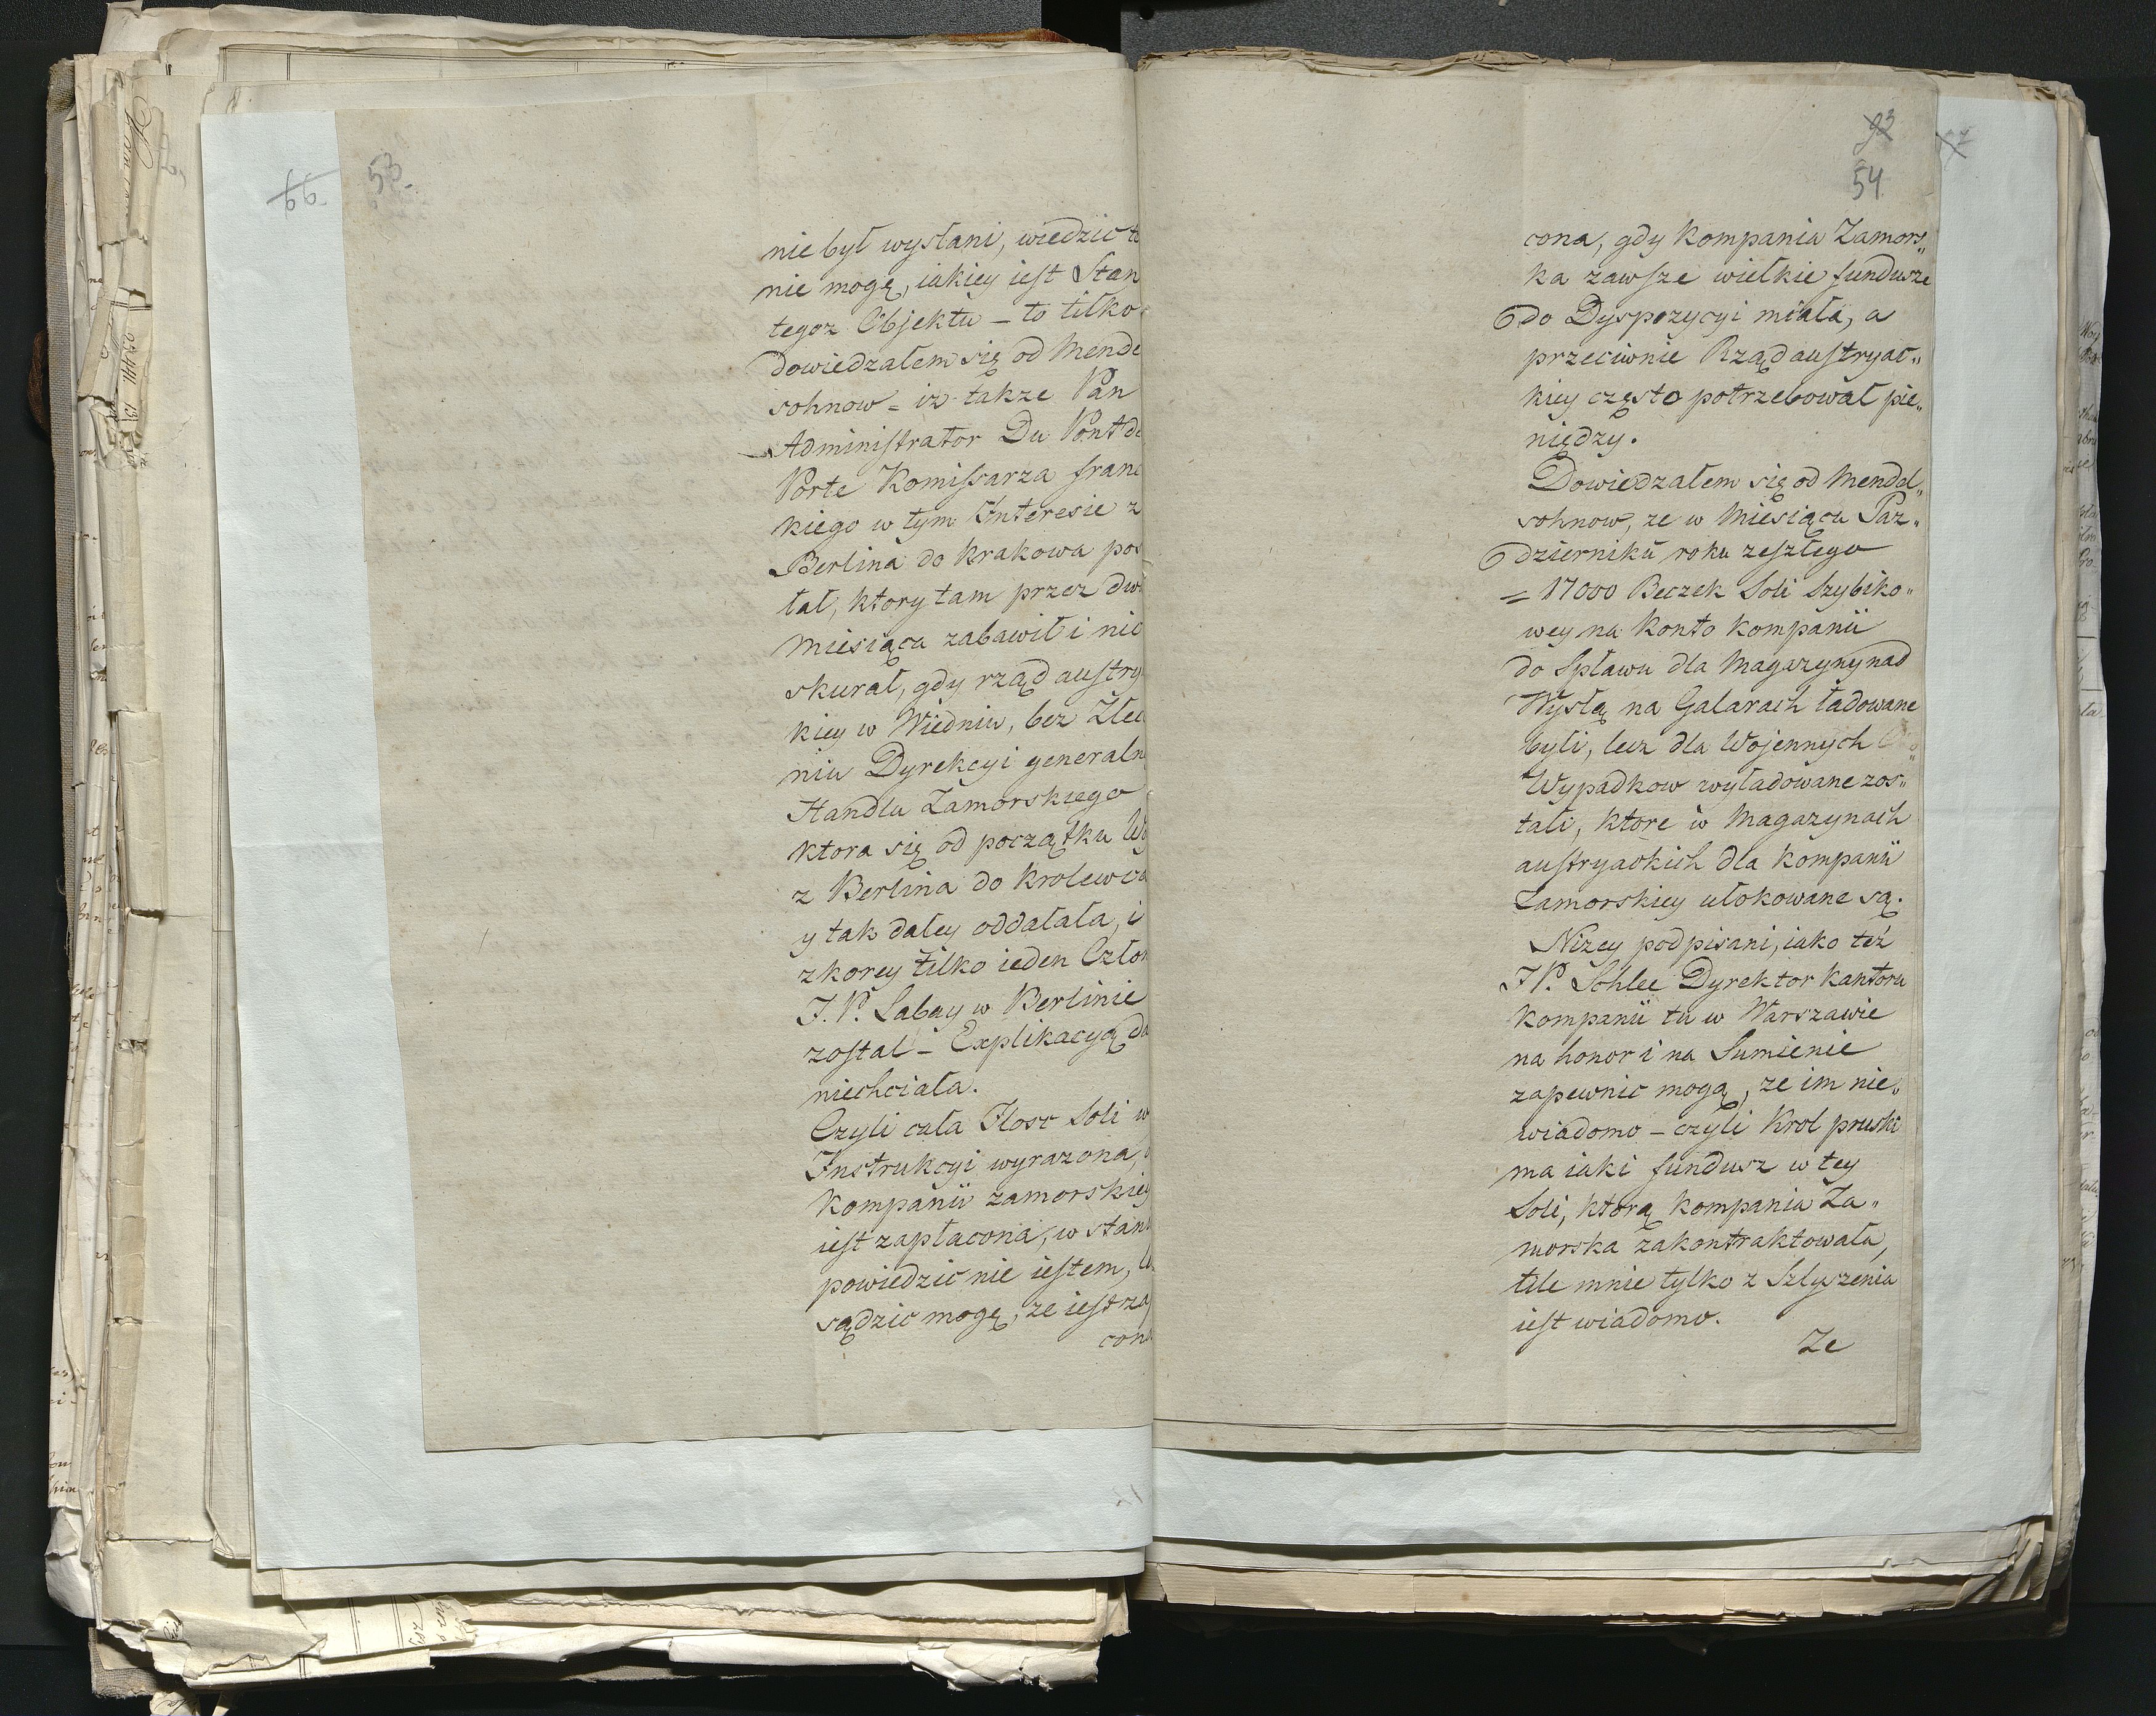 66
53
nie był wysłani, wiedzić to
nie mogę, iakiey iest Stan
tegoz Objektu – to tilko
dowiedzałem się od Mende
sohnow = iz takze Pan
Administrator Du Pont de
Porte Komissarza franc
kiego w tym Interesie z
Berlina do Krakowa pos
łał, ktory tam przez dwa
Miesiąca zabawił i nic
skurał, gdy rząd austry
kiey w Wiedniu, bez Zlec
niu Dyrekcyi generaln
Handlu Zamorskiego
ktora się od początku Wo
z Berlina do Krolewca
y tak daley oddalała, i
z korey tilko ieden Człon
J. P. Labay w Berlinie
został – Explikacyą da
niechciała.
Czyli cała Ilosc Soli w
Instrukcyi wyrazona,
Kompanii zamorskiey
iest zapłacona, w stani
powiedzić nie iestem,
sądzic mogę, ze iest za
cona
93
54
cona, gdy Kompania Zamors„
ka zawsze wielkie fundusze
do Dyspozycyi miała, a
przeciwnie Rząd austryac„
kiey często potrzebował pie„
niędzy.
Dowiedzałem się od Mendel„
sohnow, ze w Miesiącu Paz„
dzierniku roku zeszłego
= 17000 Beczek Soli Szybiko„
wey na Konto Kompanii
do Spławu dla Magazyny nad
Wysłą na Galarach ładowane
byli, lecz dla Wojennych
Wypadkow wyładowane zos„
tali, ktore w Magazynach
austryackich dla Kompanii
Zamorskiey ulokowane są.
Nizey podpisani, iako też
J P. Schlee Dyrektor Kantoru
Kompanii tu w Warszawie
na honor i na Sumienie
zapewnic mogą, ze im nie„
wiadomo – czyli Krol pruski
ma iaki fundusz w tey
Soli, ktorą Kompania Za„
morska zakontraktowała,
tile mnie tylko z Szlyszenia
iest wiadomo.
Ze